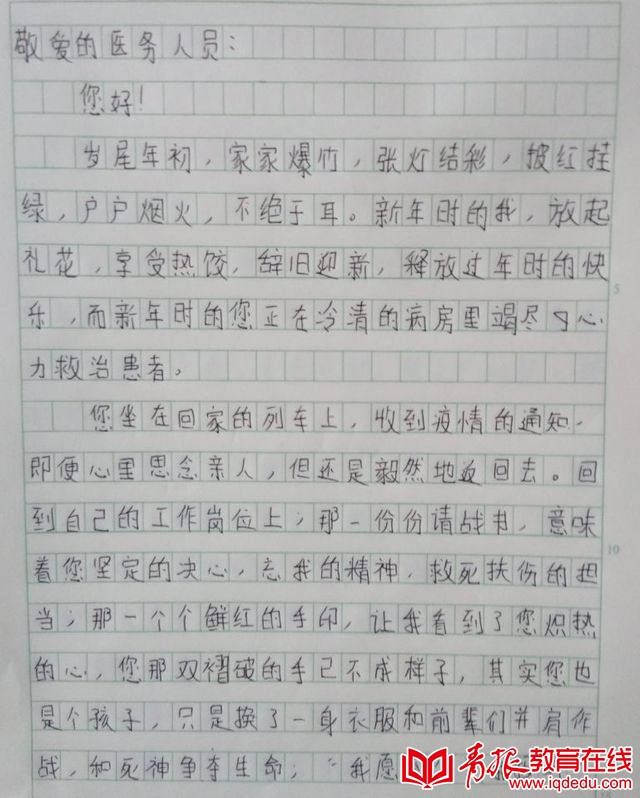 敬爱的医务人员：
您好！
岁尾年初，家家爆竹，张灯结彩，披红挂
绿，户户烟火，不绝于耳。新年时的我，放起
礼花，享受热饺，辞旧迎新，释放过年时的快
乐，而新年时的您正在冷清的病房里竭尽心
力救治患者。
您坐在回家的列车上，收到疫情的通知，
即便心里思念亲人，但还是毅然地返回去。回
到自己的工作岗位上；那一份份请战书，意味
着您坚定的决心，忘我的精神，救死扶伤的担
当；那一个个鲜红的手印，让我看到了您炽热
的心，您那双褶破的手已不成样子，其实您也
是个孩子，只是换了一身衣服和前辈们并肩作
战，和死神争夺生命；“我愿
青报教育在线
www.iqdedu.com
5
10